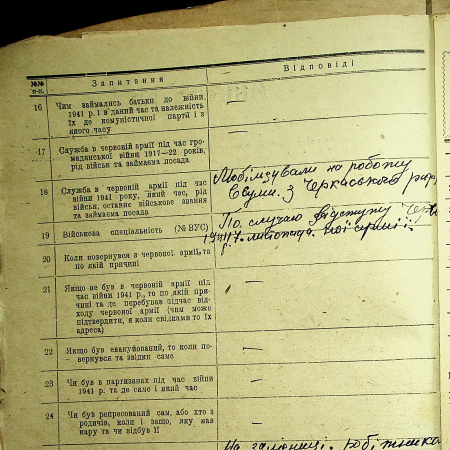 №№ п-п.
Запитання
Відповіді
16
Чим займались батьки до війни
1941 р. і в даний час та належність
їх до комуністичної партії і з
якого часу
—
17
Служба в червоній армії під час гро-
мадянської війни 1917—22 років,
рід військ та займаєма посада
—
18
Служба в червоній армії під час
війни 1941 року, який час, рід
військ, останнє військове звання
та займаєма посада
Мобілізували на роботу
в Суми. з Черкаського
19
Військова спеціальність (№ ВУС)
По случаю відступу
листопада
20
Коли повернувся з червоної армії, та
по якій причині
21
Якщо не був в червоній армії під
час війни 1941 р., то по якій при-
чині та де перебував підчас від-
ходу червоної армії (чим може
підтвердити, я коли свідками то їх
адреса)
—
22
Якщо був евакуйований, то коли по-
вернувся та звідки саме
—
23
Чи був в партизанах під час війни
1941 р. та де саме і який час
—
24
Чи був репресований сам, або хто з
родичів, коли і защо, яку мав
кару та чи відбув її
—
На залізниці робітника